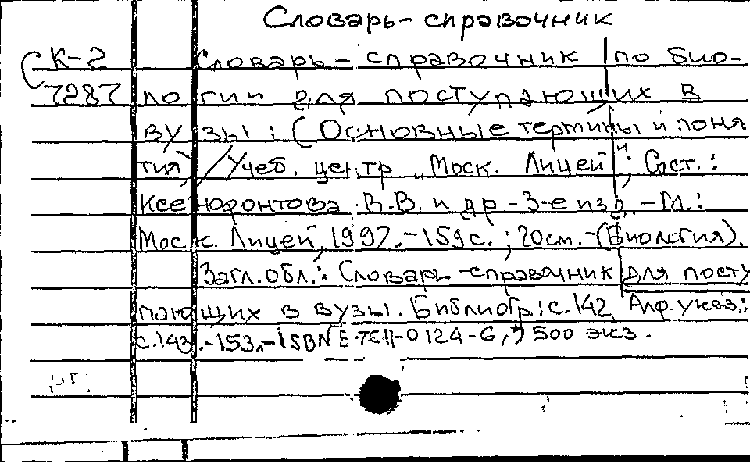 Словарь-справочник
К-2 Словарь-справочник по био-
7287 логии для поступающих в
вузы: (Основные термины и поня
тия) / Учеб. центр "Моск. Лицей"; Сост.:
Ксенофонтова В.В. и др - 3-е изд. - М.:
Моск. Лицей, 1997. - 159 с.; 20 см. - (Биология).
Загл. обл.: Словарь-справочник для посту
пающих в вузы. Библиогр: с. 142. Алф. указ.:
с. 143. - 153. - ISBN 500 экз.